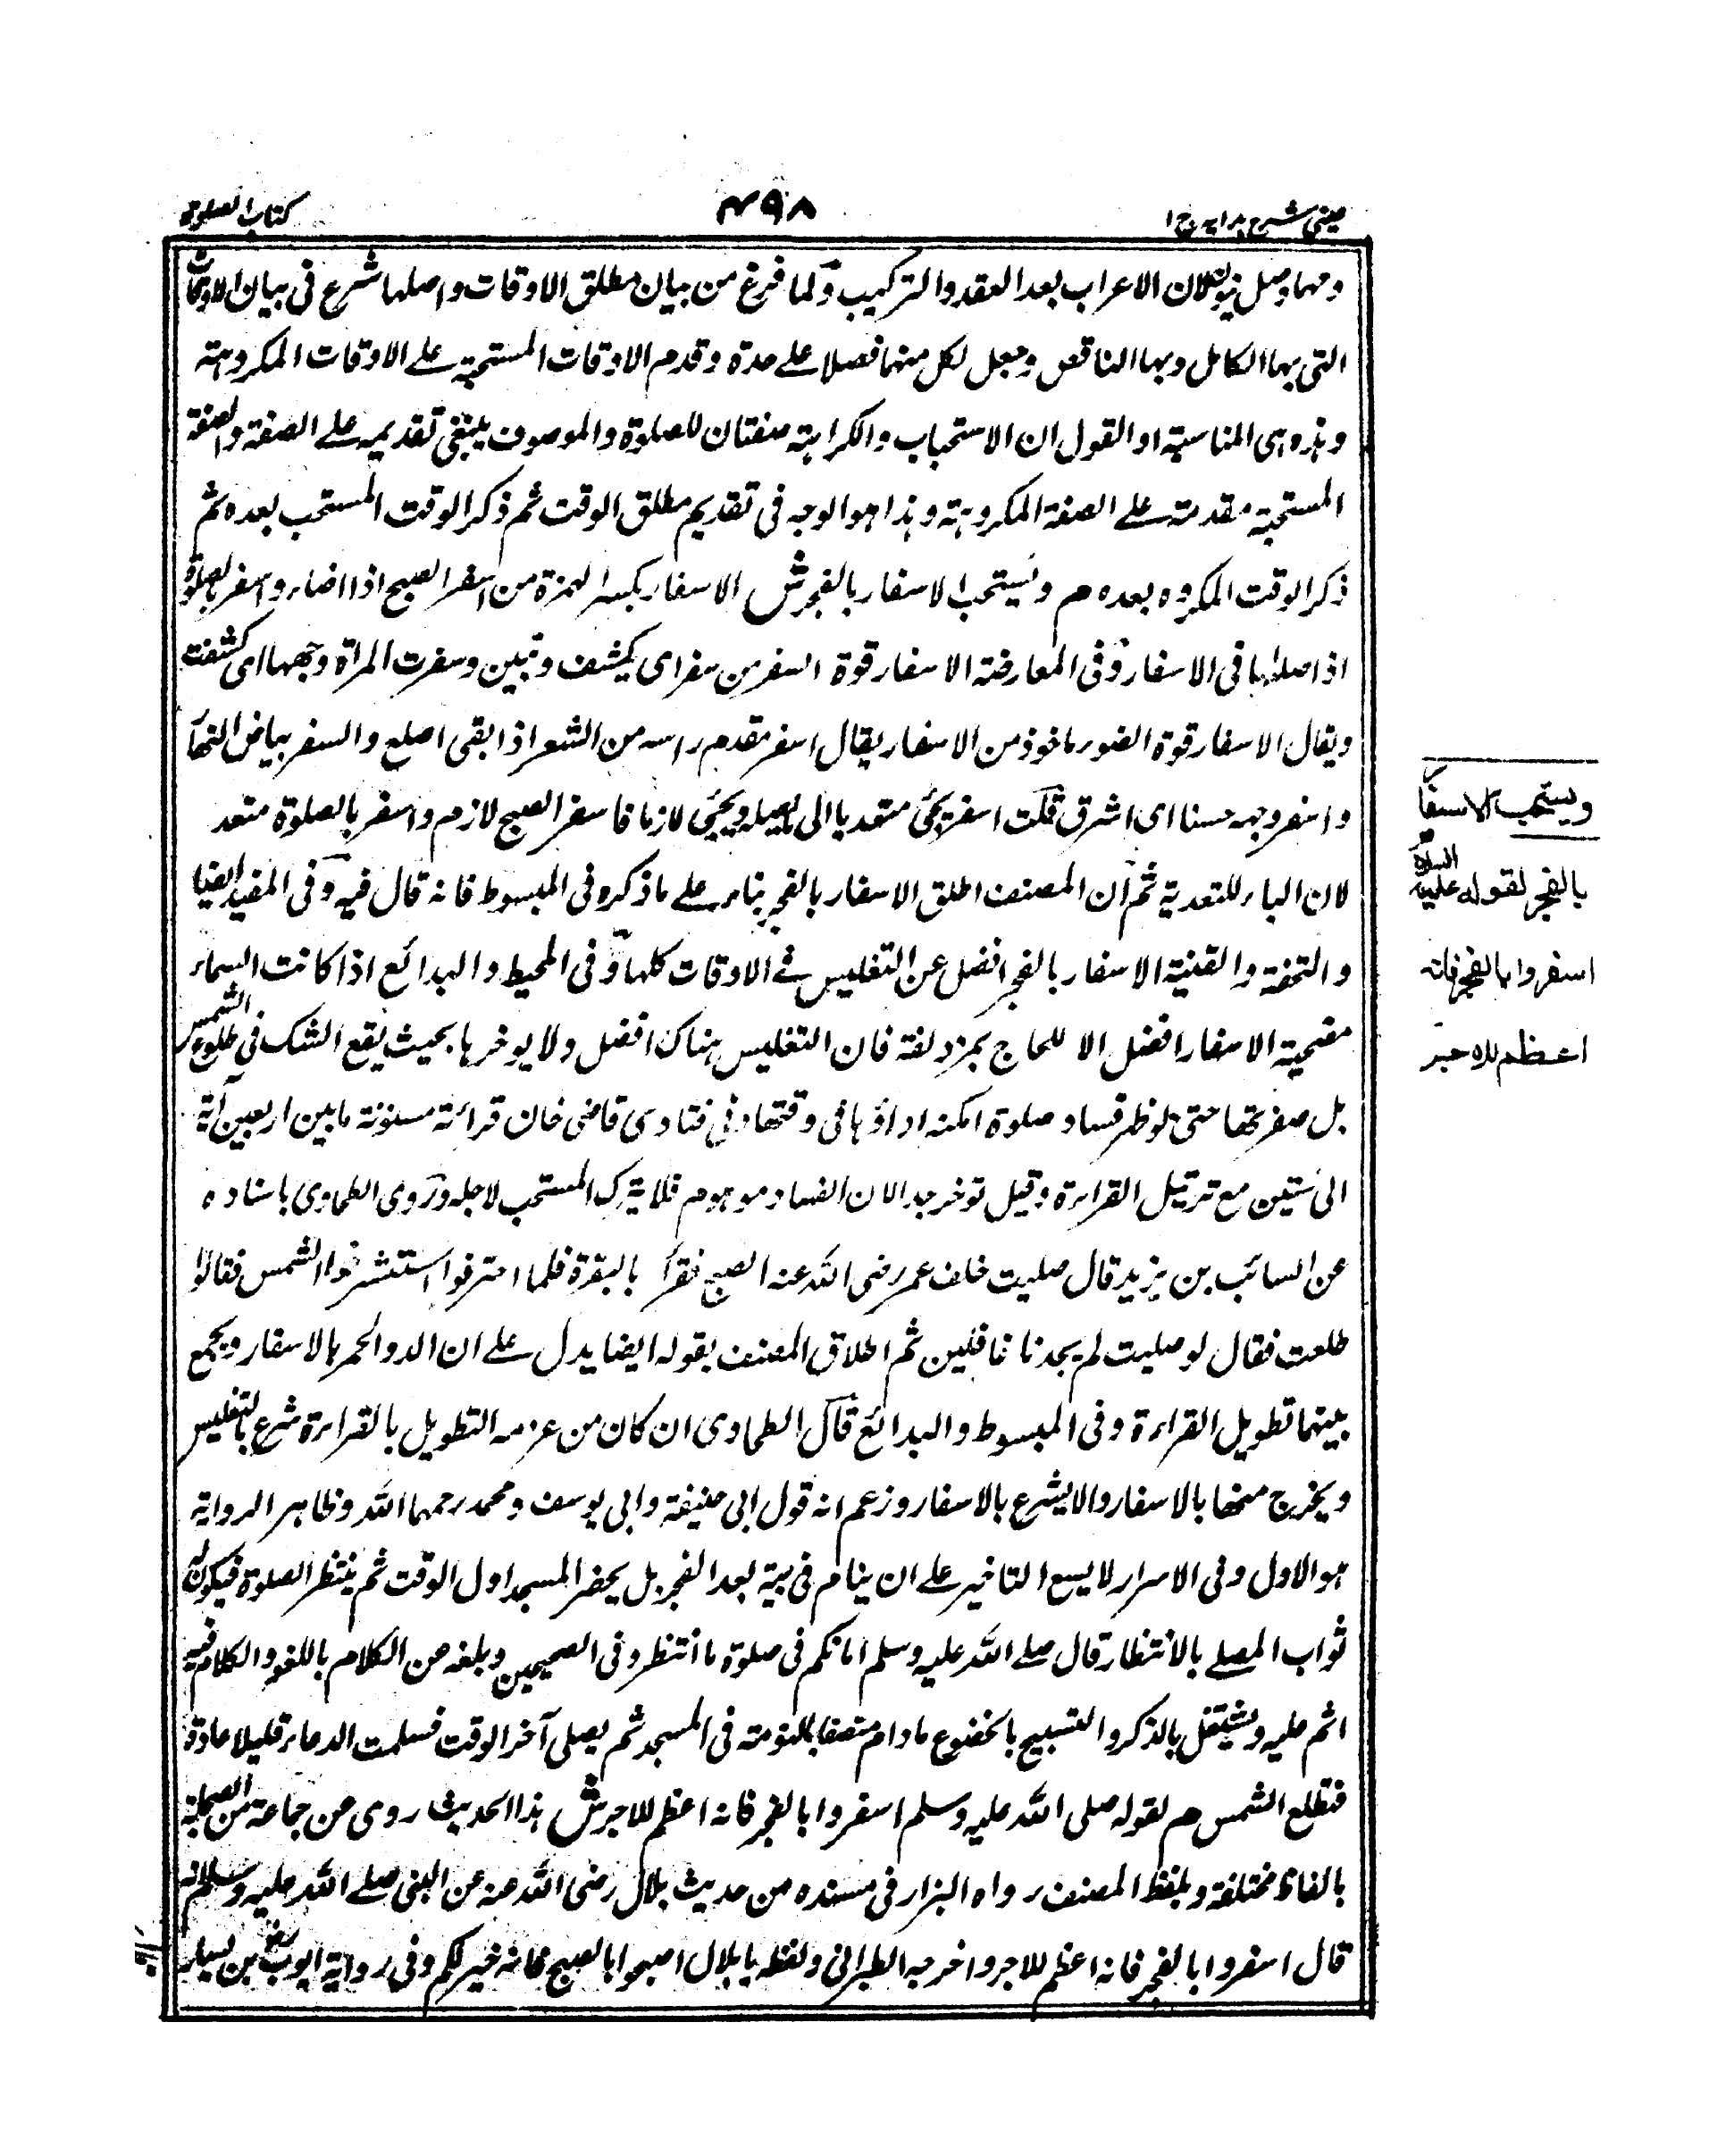 عینی شرح ہدایہ ج ا
۴۹۸
کتاب الصلوة
ومهما وصل ينون لان الاعراب بعد العقد والتركيب ولما فرغ من بيان مطلق الاوقات واصلها شرع فى بيان الاوقات
التى بها الكامل وبها الناقص وجعل لكل منهما فصلا على حدة وقدم الاوقات المستحبة على الاوقات المكروهة
وهذه هى المناسبة او القول ان الاستحباب والكراهة صفتان للصلوة والموصوف ينبغى تقديمه على الصفة والصفة
المستحبة مقدمة على الصفة المكروهة وهذا هو الوجه فى تقديم مطلق الوقت ثم ذكر الوقت المستحب بعده ثم
ذكر الوقت المكروه بعده م ويستحب الاسفار بالفجر ش الاسفار بكسر الهمزة من اسفر الصبح اذا اضاء واسفر بالصلوة
اذا صلاها فى الاسفار وفى المعارضة الاسفار قوة السفر من سفر اى كشف وتبين وسفرت المراة وجهها اى كشفت
ويقال الاسفار قوة الضوء ماخوذ من الاسفار يقال اسفر مقدم راسه من الشعر اذا بقى اصلع والسفر بياض النهار
واسفر وجهه حسنا اى اشرق قلت اسفر يجئ متعديا الى يصيله ويجئ لازما فاسفر الصبح لازم واسفر بالصلوة متعد
لان الباء للتعدية ثم ان المصنف اطلق الاسفار بالفجر بناء على ما ذكره فى المبسوط فانه قال فيه وفى المفيد ايضا
والتحفة والقنية الاسفار بالفجر افضل عن التغليس فى الاوقات كلها وفى المحيط والبدائع اذا كانت السماء
مضحية الاسفار افضل الا للحاج بمزدلفة فان التغليس هناك افضل ولا يوخرها بحيث يقع الشك فى طلوع الشمس
بل صفر بها حتى لو ظهر فساد صلوة امكنه اداؤها فى وقتها وفى فتاوى قاضى خان قرائة مسنونة ما بين اربعين آية
الى ستين مع ترتيل القراءة وقيل توخر جدا لان الفساد موهوم فلا يترك المستحب لاجله وروى الطحاوى باسناده
عن السائب بن يزيد قال صليت خلف عمر رضى الله عنه الصبح فقرأ بالبقرة فلما انصرفوا استشرفوا الشمس فقالوا
طلعت فقال لو صليت لم يجدنا غافلين ثم اطلاق المصنف بقوله ايضا يدل على ان البدو والختم بالاسفار ويجمع
بينهما تطويل القراءة وفى المبسوط والبدائع قال الطحاوى ان كان من عزمه التطويل بالقراءة شرع بالتغليس
ويخرج منها بالاسفار والا يشرع بالاسفار وزعم انه قول ابى حنيفة وابى يوسف ومحمد رحمهما الله وظاهر الرواية
هو الاول وفى الاسرار لا يسع التاخير على ان ينام فى بيته بعد الفجر بل يحضر المسجد اول الوقت ثم ينتظر الصلوة فيكون له
ثواب المصلى بالانتظار قال صلى الله عليه وسلم امانكم فى صلوة ما انتظر وفى الصحيحين وبلغه من الكلام باللغو والكلام فيه
اثم عليه ويشتغل بالذكر والتسبيح بالخضوع مادام متصفا بالنومة فى المسجد ثم يصلى آخر الوقت فسلمت الدعاء قليلا عادة
فتطلع الشمس م لقوله صلى الله عليه وسلم اسفروا بالفجر فانه اعظم للاجر ش هذا الحديث روى عن جماعة من الصحابة
بالفاظ مختلفة وبلفظ المصنف رواه البزار فى مسنده من حديث بلال رضى الله عنه عن النبى صلى الله عليه وسلم انه
قال اسفروا بالفجر فانه اعظم للاجر واخرجه الطبرانى ولفظه يا بلال اصبحوا بالصبح فانه خير لكم وفى رواية ايوب بن يسار
ويستحب الاسفار
بالفجر لقوله عليه السلام
اسفروا بالفجر فانه
اعظم للاجر